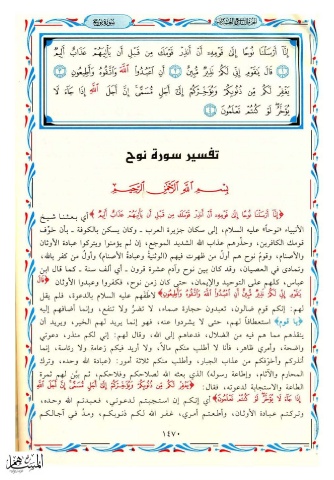 سورة نوح
إِنَّا أَرْسَلْنَا نُوحًا إِلَىٰ قَوْمِهِ أَنْ أَنذِرْ قَوْمَكَ مِن قَبْلِ أَن يَأْتِيَهُمْ عَذَابٌ أَلِيمٌ
﴿١﴾ قَالَ يَا قَوْمِ إِنِّي لَكُمْ نَذِيرٌ مُّبِينٌ ﴿٢﴾ أَنِ اعْبُدُوا اللَّهَ وَاتَّقُوهُ وَأَطِيعُونِ ﴿٣﴾
يَغْفِرْ لَكُم مِّن ذُنُوبِكُمْ وَيُؤَخِّرْكُمْ إِلَىٰ أَجَلٍ مُّسَمًّى إِنَّ أَجَلَ اللَّهِ إِذَا جَاءَ لَا
يُؤَخَّرُ لَوْ كُنتُمْ تَعْلَمُونَ ﴿٤﴾
تفسير سورة نوح
بسم الله الرحمن الرحيم
﴿إِنَّا أَرْسَلْنَا نُوحًا إِلَىٰ قَوْمِهِ أَنْ أَنذِرْ قَوْمَكَ مِن قَبْلِ أَن يَأْتِيَهُمْ عَذَابٌ أَلِيمٌ﴾ أي بعثنا شيخ
الأنبياء «نوحاً» عليه السلام، إلى سكان جزيرة العرب - وكان يسكن بالكوفة - بأن خوِّف
قومك الكافرين، وحذِّرهم عذاب الله الشديد الموجع، إن لم يؤمنوا ويتركوا عبادة الأوثان
والأصنام، وقوم نوح هم أول من ظهرت فيهم (الوثنية وعبادة الأصنام) وأول من كفر بالله،
وتمادى في العصيان، وقد كان بين نوح وآدم عشرة قرون - أي ألف سنة - كما قال ابن
عباس، كلهم على التوحيد والإيمان، حتى كان زمن نوح، فكفروا وعبدوا الأوثان ﴿قَالَ
يَا قَوْمِ إِنِّي لَكُمْ نَذِيرٌ مُّبِينٌ أَنِ اعْبُدُوا اللَّهَ وَاتَّقُوهُ وَأَطِيعُونِ﴾ لاطفهم عليه السلام بالدعوة، فلم يقل
لهم: إنكم قوم ضالون، تعبدون حجارة صماء، لا تضرُّ ولا تنفع، وإنما أضافهم إليه
﴿يا قوم﴾ استعطافاً لهم، حتى لا يشردوا عنه، فهو إنما يريد لهم الخير، ويريد أن
ينقذهم مما هم فيه من الضلال، فدعاهم إلى الله، وقال لهم: إني لكم منذر، دعوتي
واضحة، وأمري ظاهر، فأنا لا أطلب منكم مالاً، ولا أريد فيكم زعامة ولا رئاسة، إنما
أنذركم وأخوّفكم من عذاب الجبار، وأطلب منكم ثلاثة أمور: (عبادة الله وحده، وترك
المحارم والآثام، وإطاعة رسوله) الذي بعثه الله لصلاحكم وفلاحكم، ثم بيَّن لهم ثمرة
الطاعة والاستجابة لدعوته، فقال: ﴿يَغْفِرْ لَكُم مِّن ذُنُوبِكُمْ وَيُؤَخِّرْكُمْ إِلَىٰ أَجَلٍ مُّسَمًّى إِنَّ أَجَلَ اللَّهِ إِذَا جَاءَ
لَا يُؤَخَّرُ لَوْ كُنتُمْ تَعْلَمُونَ﴾ أي إنكم إن استجبتم لدعوتي، فعبدتم الله وحده،
وتركتم عبادة الأوثان، وأطعتم أمري، غفر الله لكم ذنوبكم، ومدَّ في آجالكم
١٤٧٠